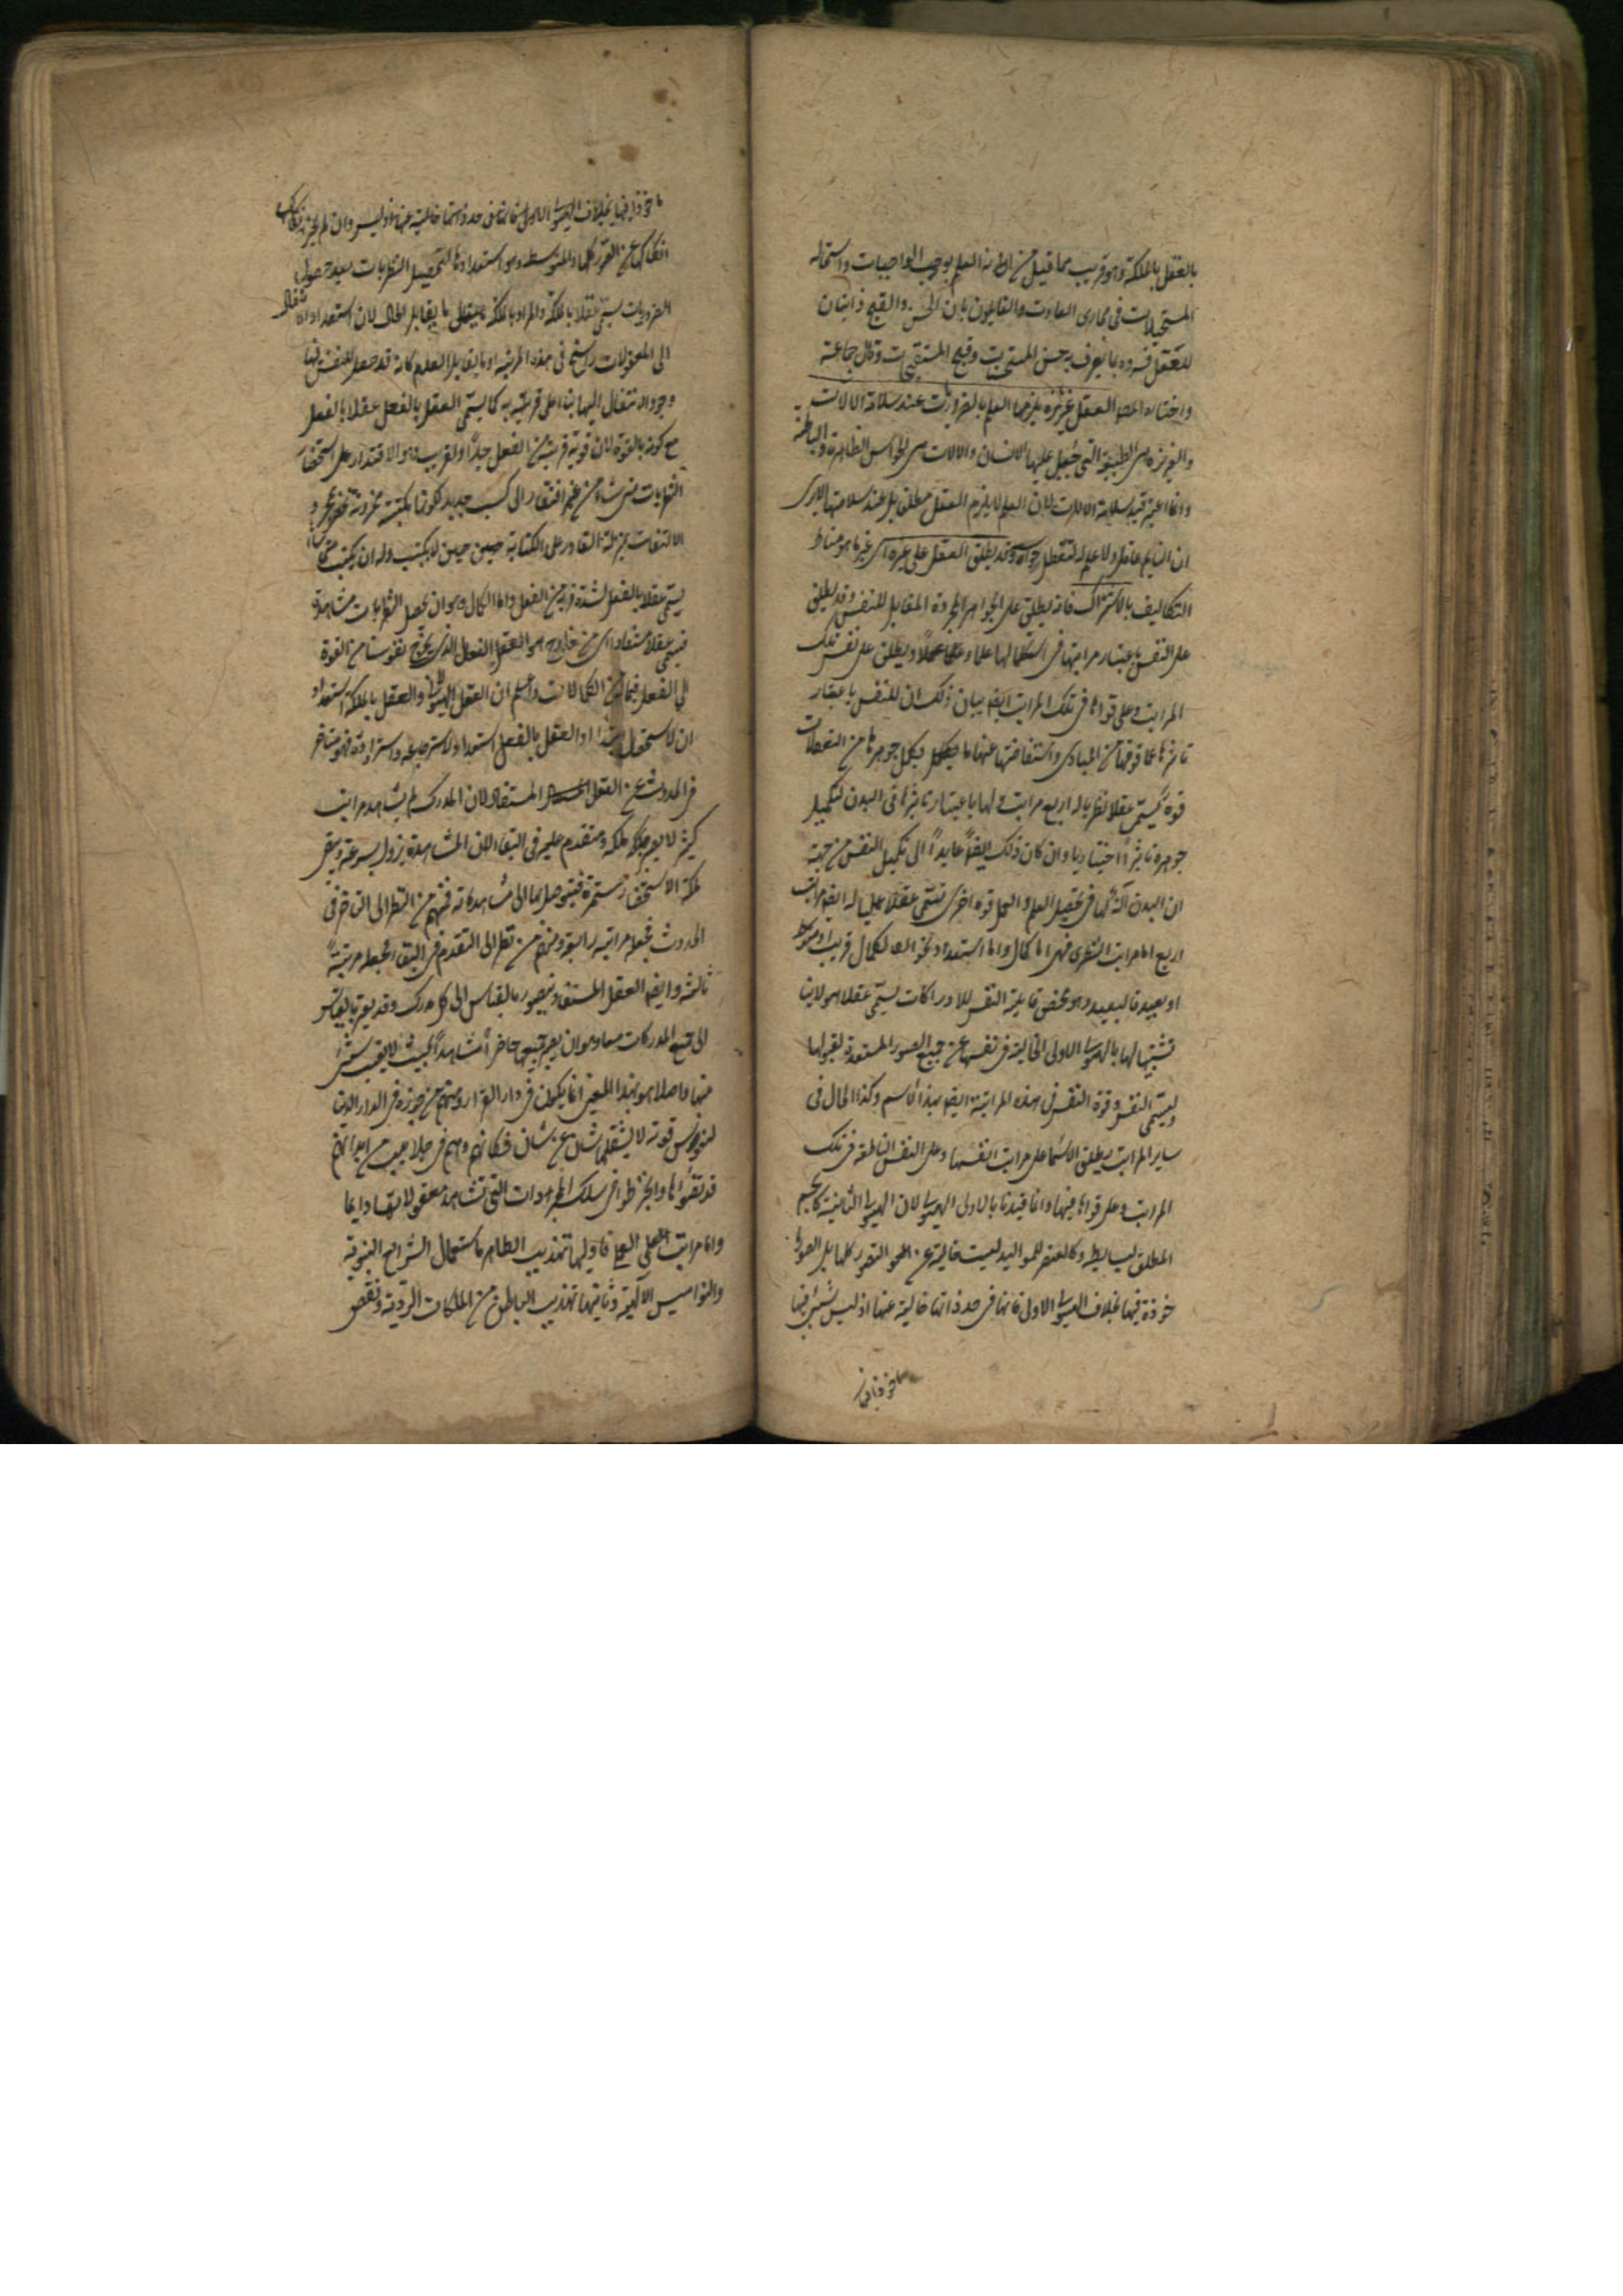 بالعقل بالملكة وهو قريب مما قيل من انه العلم بوجوب الواجبات واستحالة
المستحيلات فى مجارى العادت والقايلون بان الحسن والقبح ذاتيان
للعقل فسروه بما يعرف به حسن المستحسنات وقبح المستقبحات وقال جماعة
واختاره العقل غريزة يلزمها العلم بالضروريات عند سلامة الالات
والغريزة هى الطبيعة التى جبل عليها الانسان والالات هى الحواس الظاهرة والباطنة
وانما اعتبر قيد سلامة الالات لان العلم لا يلزم العقل مطلقا بل عند سلامتها الا يرى
ان النايم عاقل ولا علم له لتعطل حواسه وقد يطلق العقل على غيره اى غير ما هو مناط
التكاليف بالاشتراك فانه يطلق على الجواهر المجردة المقابل للنفس وقد يطلق
على النفس باعتبار مراتبها فى استكمالها علما وعملا ويطلق على نفس تلك
المراتب وعلى قواها فى تلك المراتب ايضا بيان ذلك ان للنفس باعتبار
تاثرها عما فوقها من المبادى واستفاضتها عنها ما يكمل جوهرها من التعقلات
قوة يسمى عقلا نظريا له اربع مراتب ولها باعتبار تاثيرها فى البدن لتكميل
جوهره تاثيرا اختياريا وان كان ذلك ايضا عايدا الى تكميل النفس من جهة
ان البدن آلة لها فى تحصيل العلم والعمل قوة اخرى تسمى عقلا عمليا له ايضا مراتب
اربع اما مراتب النظرى فهى اما كمال واما استعداد نحو الكمال قريب او متوسط
او بعيد فالبعيد وهو محض قابلية النفس للادراكات يسمى عقلا هيولانيا
تشبيها لها بالهيولى الاولى الخالية فى نفسها عن جميع الصور المستعدة لقبولها
ويسمى النفس وقوة النفس فى هذه المرتبة ايضا بهذا الاسم وكذا الحال فى
ساير المراتب يطلق الاسما على مراتب انفسها وعلى النفس الناطقة فى تلك
المراتب وعلى قواها فيها وانما قيدنا بالاولى الهيولى لان الهيولى الثانية كالجسم
المطلق للبسايط وكالعنصر للمواليد ليست خالية عن الصور كلها بل الصور
خوذة فيها بخلاف الهيولى الاولى فانها فى حد ذاتها خالية عنها اذ ليس شىء فيها
ماخوذا فيها بخلاف الهيولى الاولى فانها فى حد ذاتها خالية عنها اذ ليس وان لم يجز
انفكاكها عن الصور كلها والمتوسط وهو استعدادها لتحصيل النظريات بعد حصول
الضروريات يسمى عقلا بالملكة والمراد بالملكة ما يقابل الحال لان استعداد الانتقال
الى المعقولات راسخ فى هذه المرتبة او ما يقابل العدم كانه قد حصل للنفس فيها
وجود الانتقال اليها بناء على قربه كما يسمى العقل بالفعل عقلا بالفعل
مع كونه بالقوة لان قوته قريبة من الفعل جدا والقريب وهو الاقتدار على استحضار
النظريات متى شاء من غير افتقار الى كسب جديد لكونها مكتسبة مخزونة تحضر بمجرد
الالتفات بمنزلة القادر على الكتابة حين لا يكتب وله ان يكتب متى شاء
يسمى عقلا بالفعل لشدة قربه من الفعل واما الكمال وهو ان يحصل النظريات مشاهدة
فيسمى عقلا مستفادا اى من خارج هو العقل الفعال الذى يخرج نفوسنا من القوة
الى الفعل فيما من الكمالات واعلم ان العقل الهيولانى والعقل بالملكة استعداد
ان لاستحصال ابتداء والعقل بالفعل استعداد لاسترجاعه واسترداده فهو متاخر
فى الحدوث عن العقل المستفاد لان المدرك ما لم يشاهد مرات
كثيرة لا يصير ملكة ومتقدم عليه فى البقاء لان المشاهدة تزول بسرعة ويبقى
ملكة الاستحضار مستمرة فيتوصل بها الى مشاهداته فمنهم من نظر الى التاخر فى
الحدوث فجعله مرتبة رابعة ومنهم من نظر الى التقدم فى البقاء فجعله مرتبة
ثالثة وايضا العقل المستفاد يتصور بالقياس الى كل مدرك وقد يعتبر بالقياس
الى جميع المدركات معا وهو ان يصير جميعها حاضرا مشاهدا بحيث لا يغيب شىء
منها اصلا وهو بهذا المعنى انما يكون فى دار القرار ومنهم من جوزه فى الدار الدنيا
لنفوس قوية لا يشغلها شان عن شان فكانهم وهم فى جلابيب من ابدانهم
قد نضوها وانخرطوا فى سلك المجردات التى تشاهد معقولاتها دايما
واما مراتب العملى فاولها تهذيب الظاهر باستعمال الشرايع النبوية
والنواميس الالهية وثانيها تهذيب الباطن من الملكات الردية ونقض